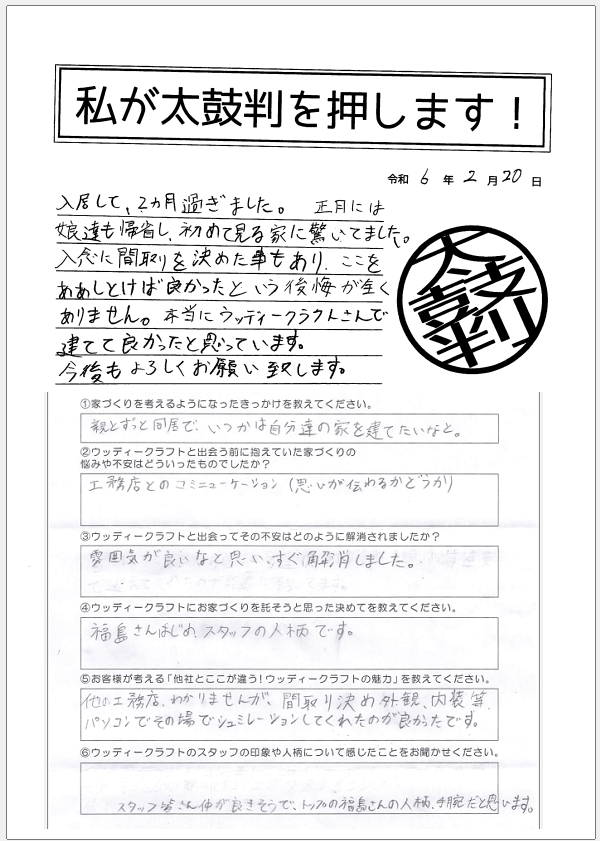 私が太鼓判を押します!
令和 6 年 2 月 20 日
入居して、2カ月過ぎました。 正月には
娘達も帰省し、初めて見る家に驚いてました。
入念に間取りを決めた事もあり、ここを
ああしとけば良かったという後悔が全く
ありません。本当にウッディークラフトさんで
建てて良かったと思っています。
今後もよろしくお願い致します。
太鼓判
①家づくりを考えるようになったきっかけを教えてください。
親とずっと同居で、いつかは自分達の家を建てたいなと。
②ウッディークラフトと出会う前に抱えていた家づくりの
悩みや不安はどういったものでしたか?
工務店とのコミニューケーション(思いが伝わるかどうか)
③ウッディークラフトと出会ってその不安はどのように解消されましたか?
雰囲気が良いなと思い、すぐ解消しました。
④ウッディークラフトにお家づくりを託そうと思った決めてを教えてください。
福島さんはじめ、スタッフの人柄です。
⑤お客様が考える「他社とここが違う!ウッディークラフトの魅力」を教えてください。
他の工務店、わかりませんが、間取り決め外観、内装等
パソコンでその場でシュミレーションしてくれたのが良かったです。
⑥ウッディークラフトのスタッフの印象や人柄について感じたことをお聞かせください。
スタッフ皆さん仲が良さそうで、トップの福島さんの人柄、手腕だと思います。